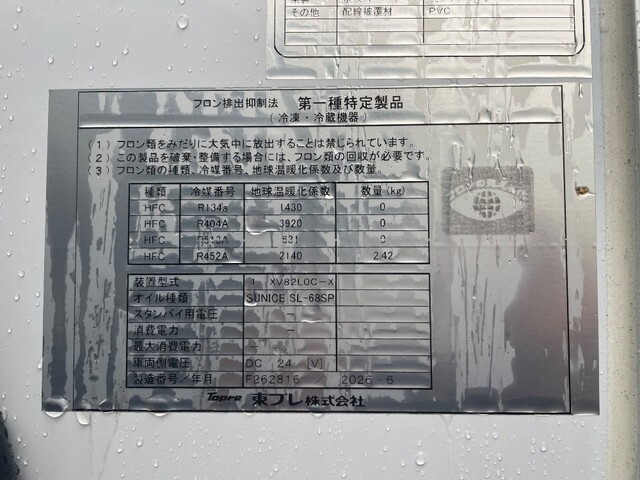 その他 配線被覆材 PVC
フロン排出抑制法 第一種特定製品
(冷凍・冷蔵機器)
(1) フロン類をみだりに大気中に放出することは禁じられています。
(2) この製品を破棄・整備する場合には、フロン類の回収が必要です。
(3) フロン類の種類、冷媒番号、地球温暖化係数及び数量。
種類 冷媒番号 地球温暖化係数 数量(kg)
HFC R134a 1430 0
HFC R404A 3920 0
HFC R513A 631 0
HFC R452A 2140 2.42
装置型式 XV82LOC-X
オイル種類 SUNICE SL-68SP
スタンバイ用電圧 —
消費電力 —
最大消費電力 —
車両側電圧 DC 24 [V]
製造番号/年月 F262816 2026-6
Topre 東プレ株式会社